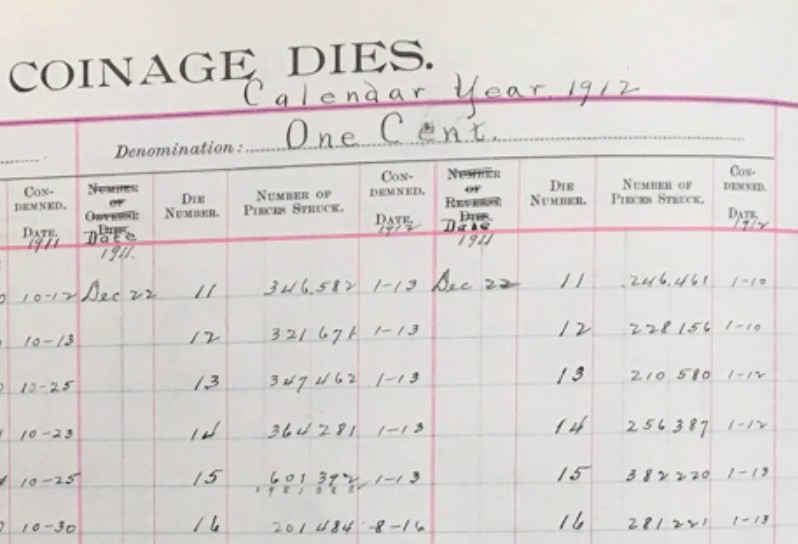 COINAGE DIES.
Calendar Year 1912
Denomination: One Cent.
CON-DEMNED. DATE. 1911 NUMBER OF OBVERSE DIE. Date 1911. DIE NUMBER. NUMBER OF PIECES STRUCK. CON-DEMNED. DATE. 1912 NUMBER OF REVERSE DIE. Date 1911 DIE NUMBER. NUMBER OF PIECES STRUCK. CON-DEMNED. DATE. 1912
10-12 Dec 22 11 346.582 1-13 Dec 22 11 246.461 1-10
10-13 12 321 671 1-13 12 228 156 1-10
10-25 13 347 462 1-13 13 210 580 1-12
10-23 14 364 281 1-13 14 256 387 1-12
10-25 15 601 392 1-13 15 382 220 1-13
10-30 16 201 484 8-16 16 281 221 1-13